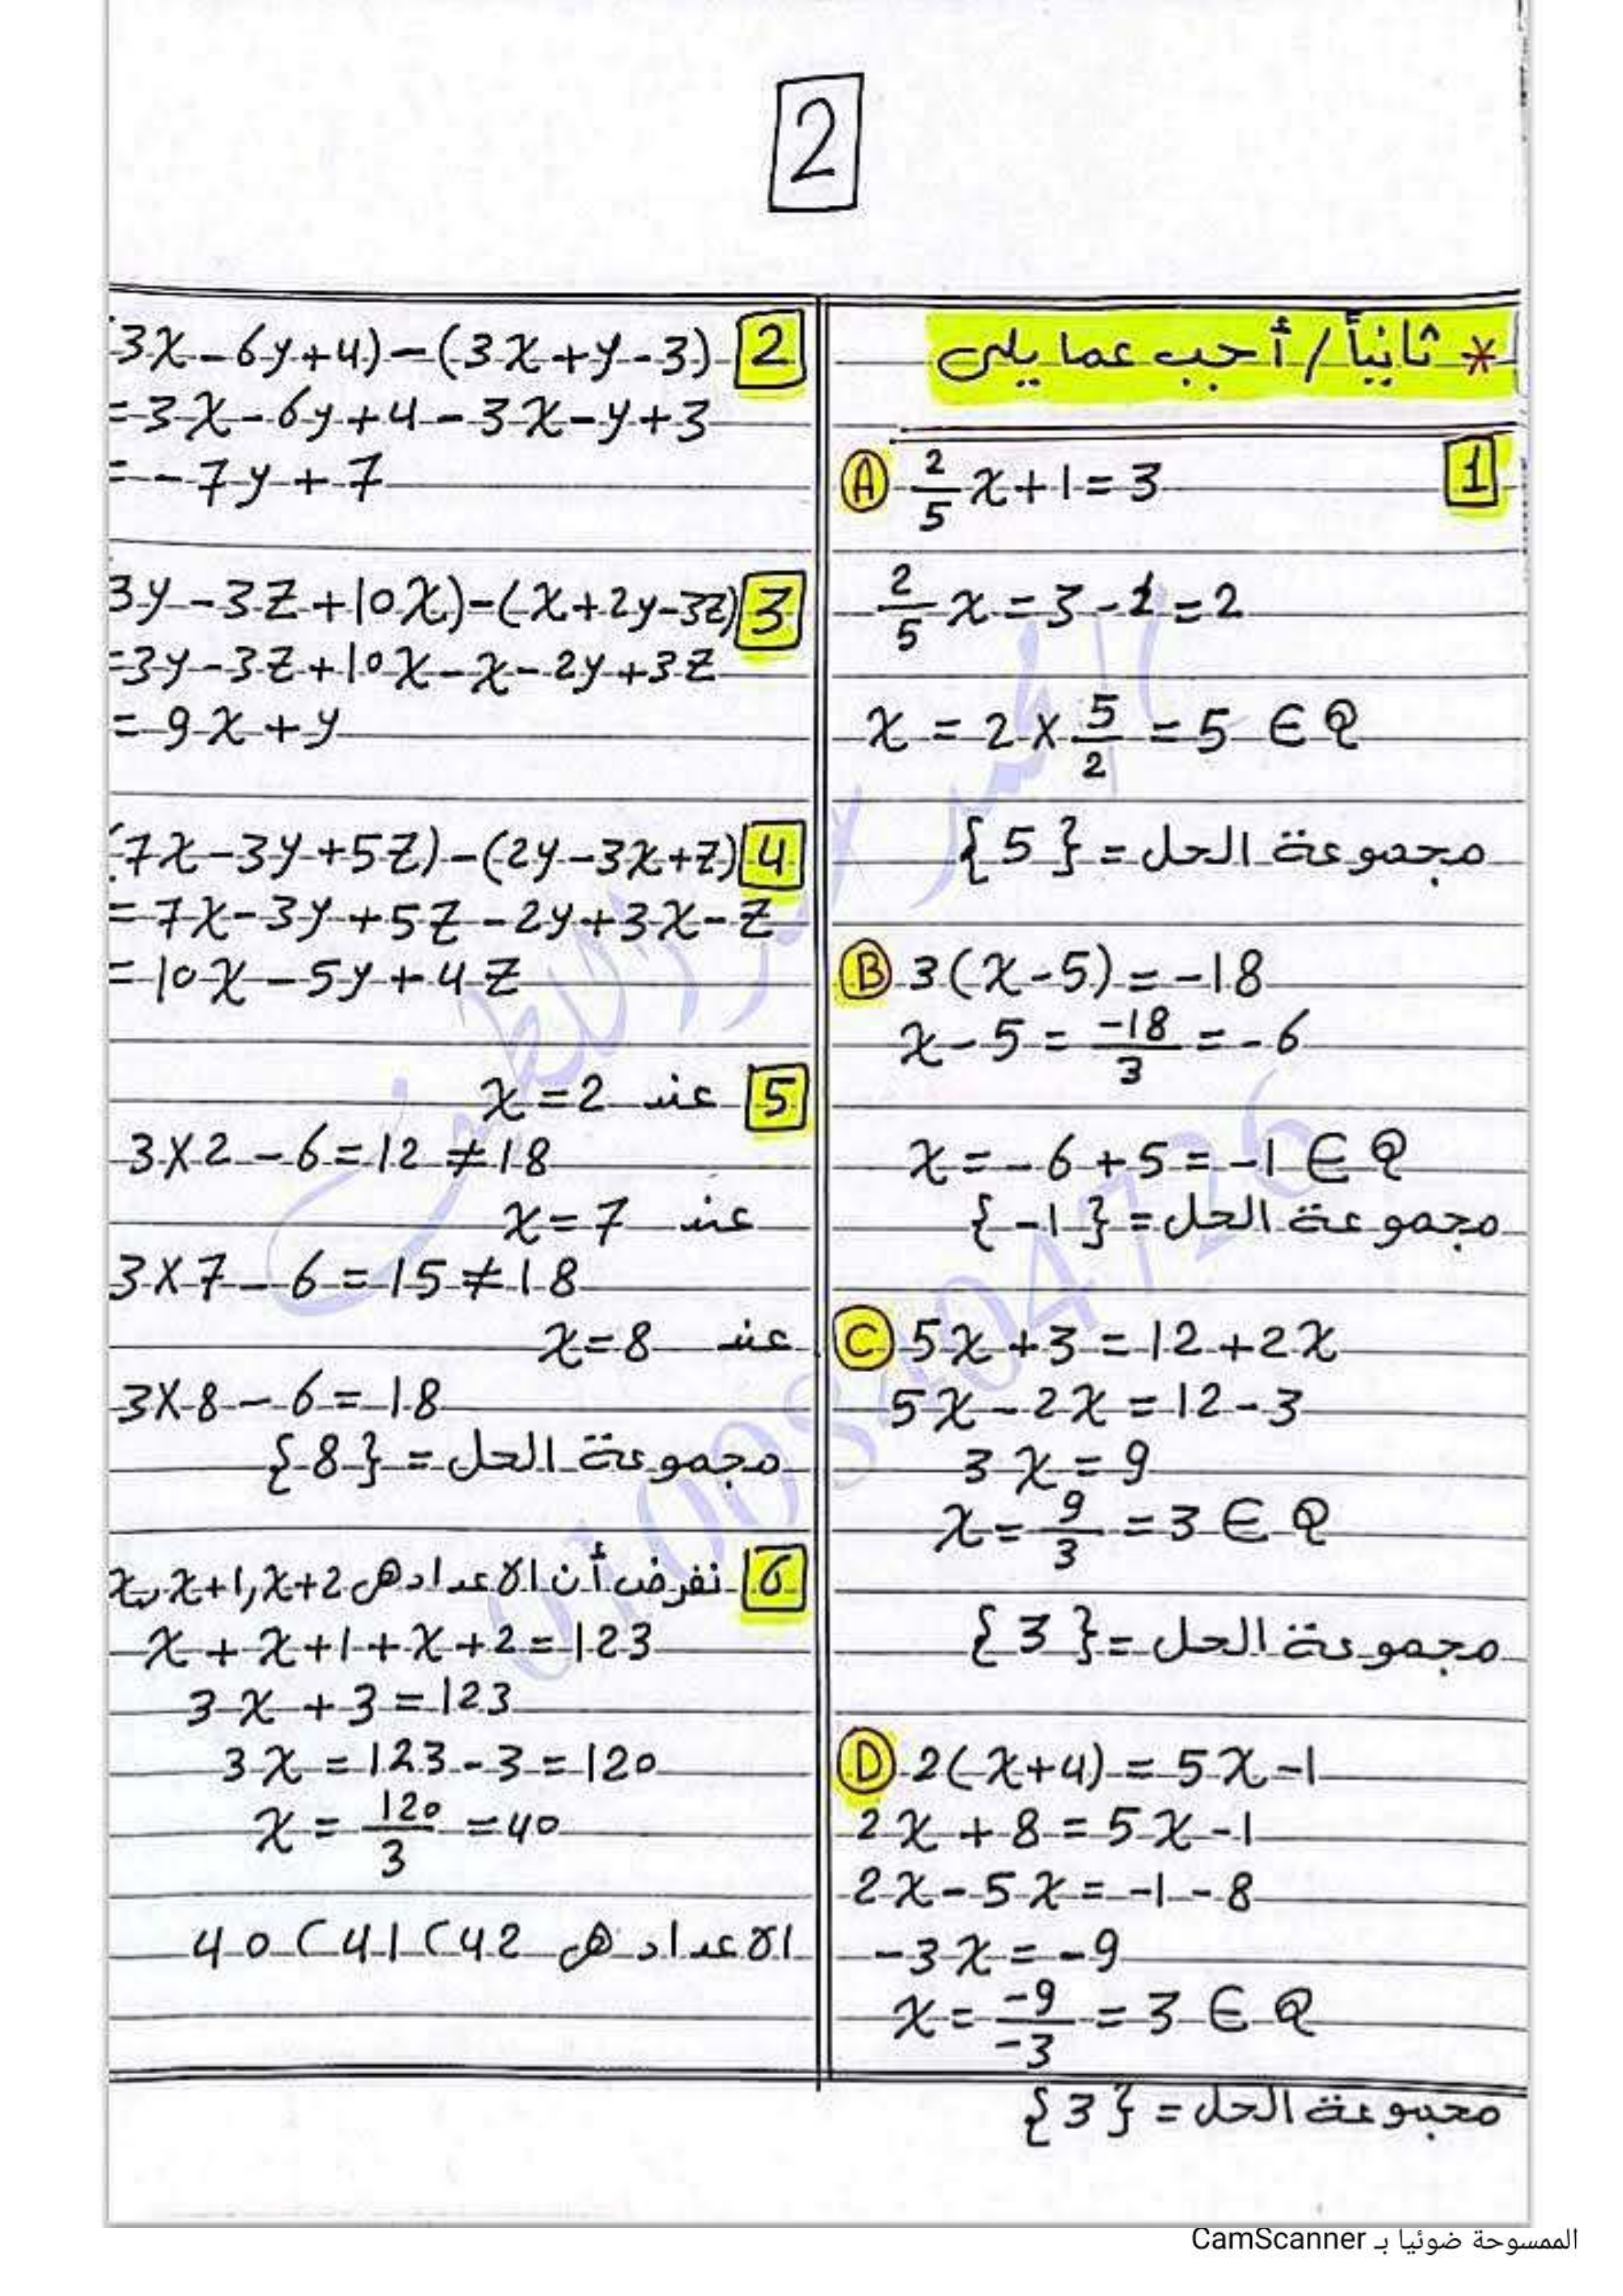 2
* ثانياً / أجب عما يلى
1
A 2/5 x + 1 = 3
2/5 x = 3 - 1 = 2
x = 2 × 5/2 = 5 ∈ Q
مجموعة الحل = {5}
B 3(x-5) = -18
x - 5 = -18/3 = -6
x = -6 + 5 = -1 ∈ Q
مجموعة الحل = {-1}
C 5x + 3 = 12 + 2x
5x - 2x = 12 - 3
3x = 9
x = 9/3 = 3 ∈ Q
مجموعة الحل = {3}
D 2(x+4) = 5x - 1
2x + 8 = 5x - 1
2x - 5x = -1 - 8
-3x = -9
x = -9/-3 = 3 ∈ Q
مجموعة الحل = {3}
2 3x - 6y + 4) - (3x + y - 3)
= 3x - 6y + 4 - 3x - y + 3
= -7y + 7
3 3y - 3z + 10x) - (x + 2y - 3z)
= 3y - 3z + 10x - x - 2y + 3z
= 9x + y
4 (7x - 3y + 5z) - (2y - 3x + z)
= 7x - 3y + 5z - 2y + 3x - z
= 10x - 5y + 4z
5 عند x = 2
3×2 - 6 = 12 ≠ 18
عند x = 7
3×7 - 6 = 15 ≠ 18
عند x = 8
3×8 - 6 = 18
مجموعة الحل = {8}
6 نفرض أن الاعداد هى x, x+1, x+2
x + x + 1 + x + 2 = 123
3x + 3 = 123
3x = 123 - 3 = 120
x = 120/3 = 40
الاعداد هى 40 ( 41 ( 42
الممسوحة ضوئيا بـ CamScanner